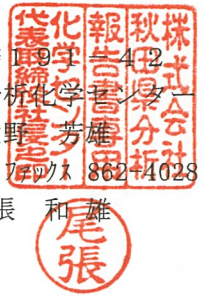 191－42
析化学センター
野　芳雄
ファックス 862-4028
張　和雄
株式会社
秋田県分析
報告書専用
化学センター
代表取締役社長之印
尾張